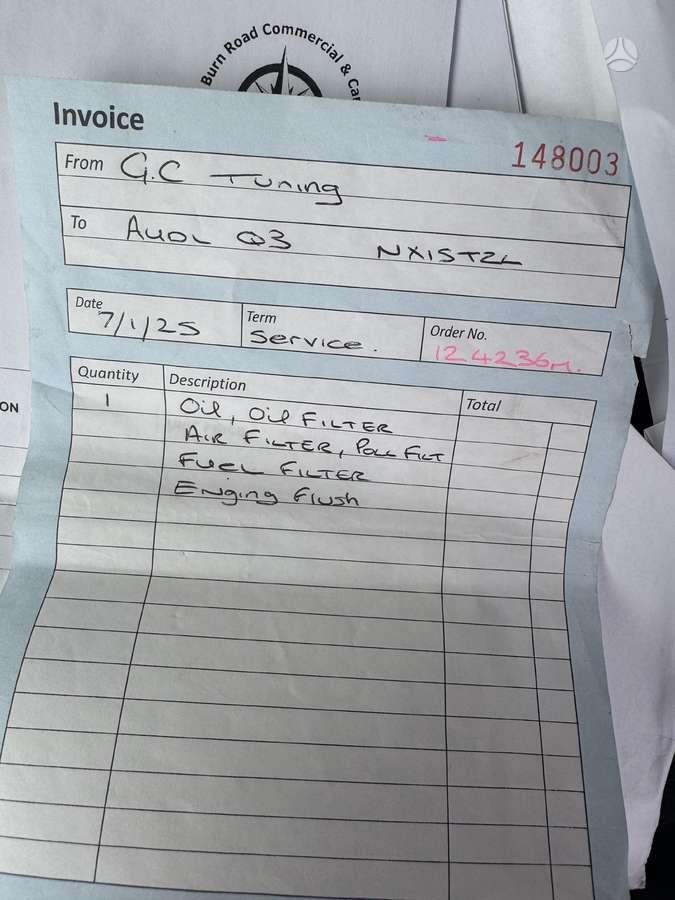 Burn Road Commercial & Car
Invoice
148003
From G.C Tuning
To AUDI Q3 NX15TZL
Date 7/1/25
Term Service.
Order No. 124236m.
Quantity Description Total
1 Oil, Oil FILTER
AIR FILTER, Poll FILT
FUEL FILTER
Enging Flush
ON